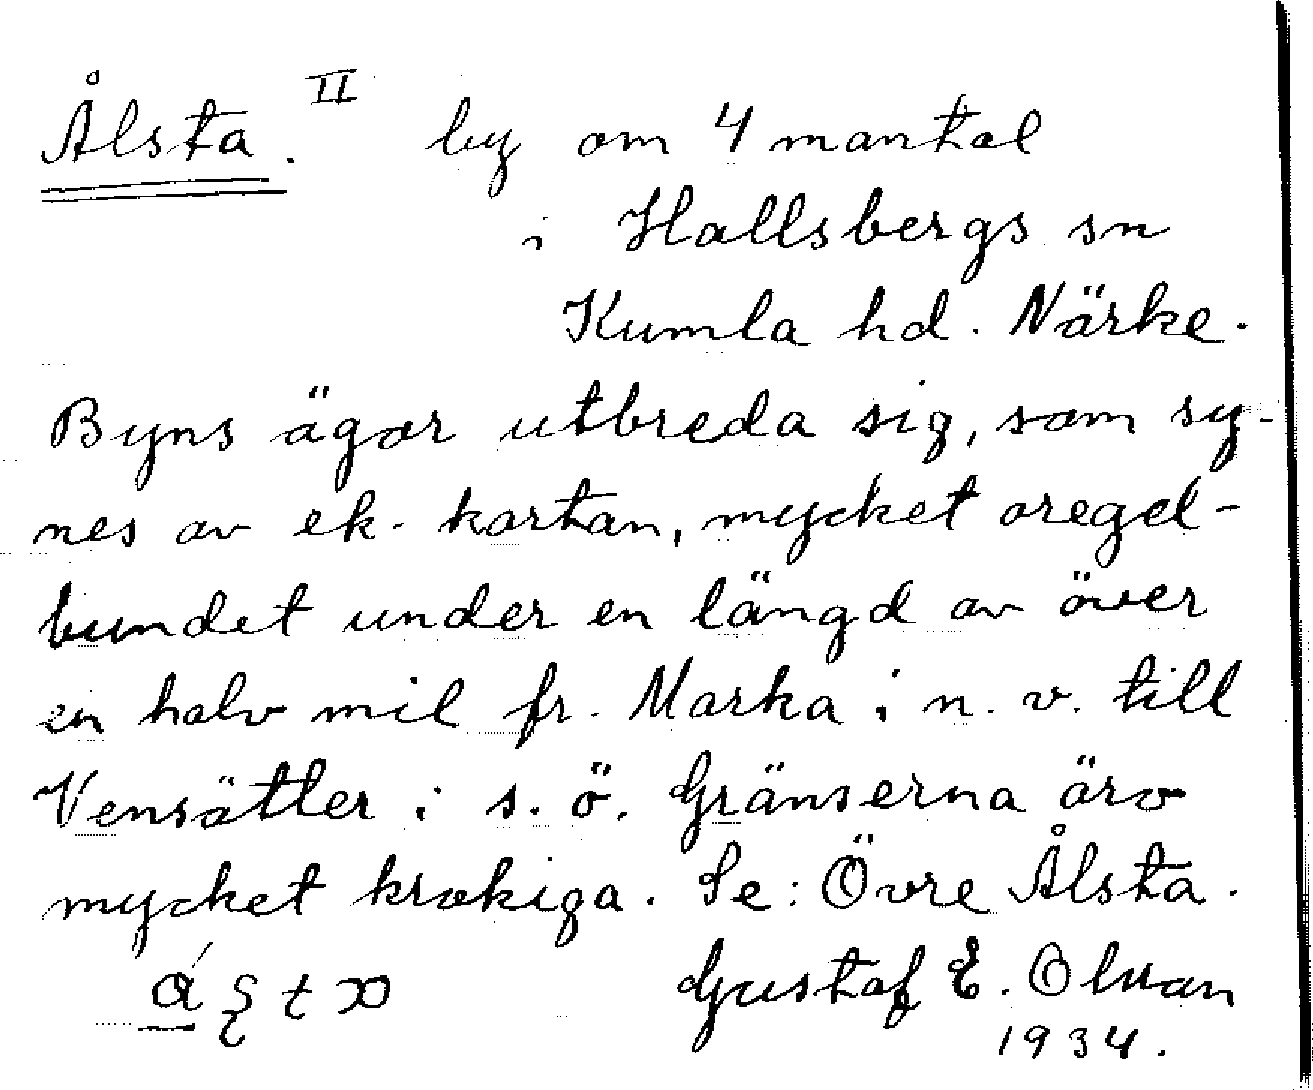 Ålsta. II by om 4 mantal
i Hallsbergs sn
Kumla hd. Närke.
Byns ägor utbreda sig, som sy-
nes av ek. kartan, mycket oregel-
bundet under en längd av över
en halv mil fr. Marka i n. v. till
Vensätter i s. ö. Gränserna äro
mycket krokiga. Se: Övre Ålsta.
Gustaf E. Olvan
1934.